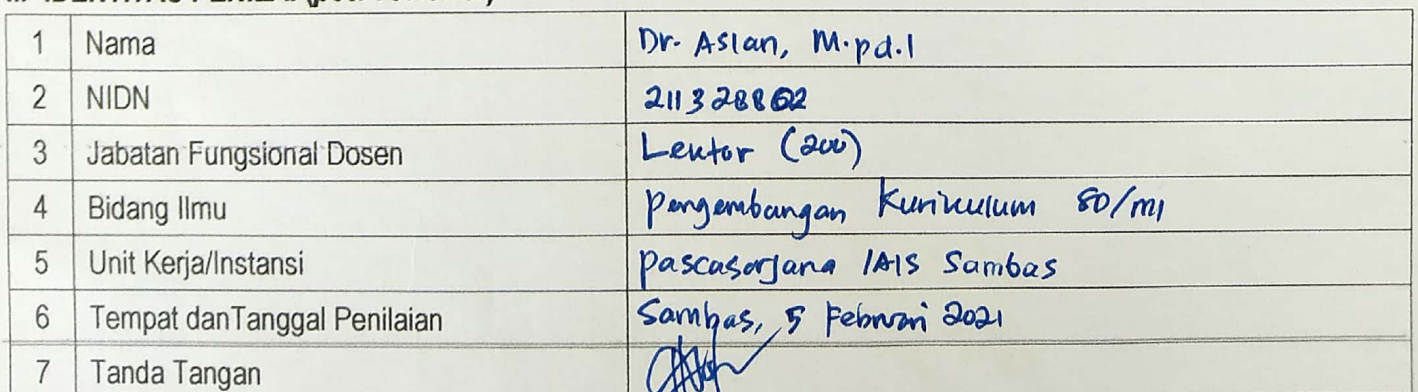 1 Nama Dr. Aslan, M.pd.I
2 NIDN
3 Jabatan Fungsional Dosen Lektor (200)
4 Bidang Ilmu Pengembangan Kurikulum SD/MI
5 Unit Kerja/Instansi Pascasarjana IAIS Sambas
6 Tempat danTanggal Penilaian Sambas, 5 Februari 2021
7 Tanda Tangan